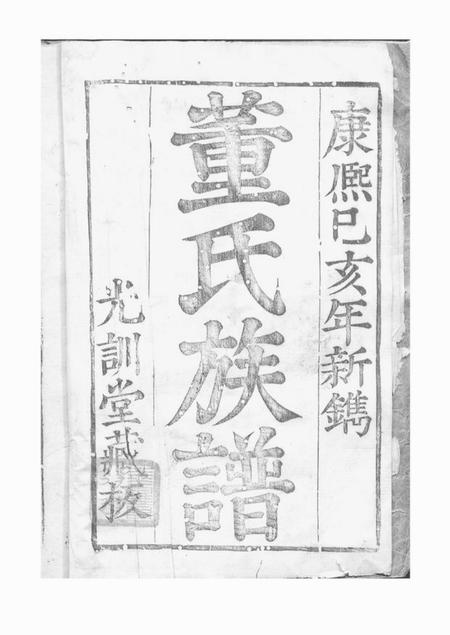 康熈己亥年新鐫
董氏族譜
光訓堂藏板